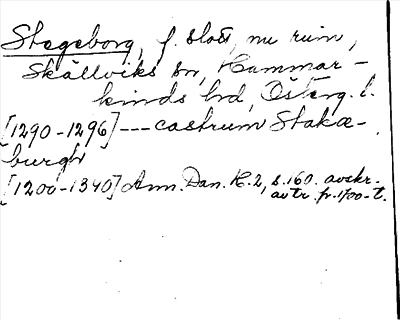 Stegeborg, f. slott, nu ruin,
Skällviks sn, Hammar-
kinds hd, Österg. l.
[1290-1296] --- castrum Stakæ-
burgh
[1200-1340] Ann. Dan. H. 2, s. 160. avskr.
avtr. fr. 1700-t.